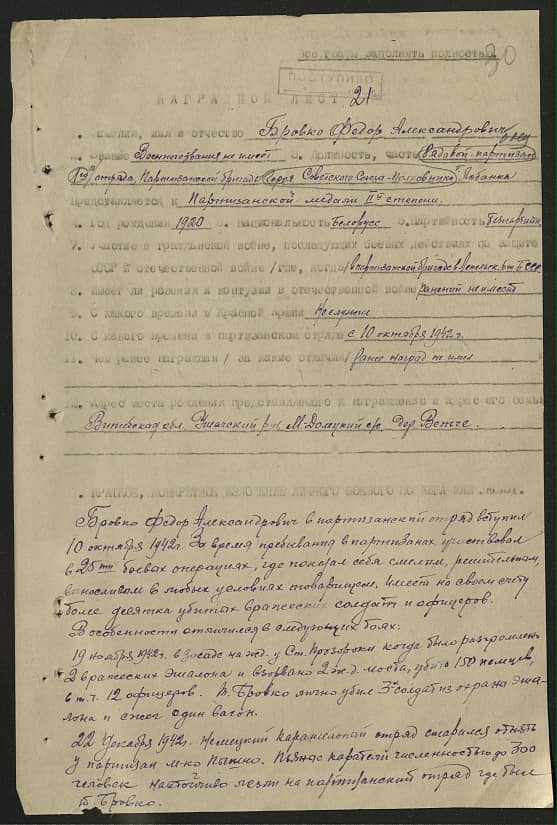 Все графы заполнять полностью
30
ПОСТУПИЛО
НАГРАДНОЙ ЛИСТ 21
1. Фамилия, имя и отчество Бровко Федор Александрович
2. Звание Военного звания не имеет 3. Должность, часть Рядовой-партизан
отряда, Партизанской бригады Героя Советского Союза-Полковника Лобанка
Представляется к Партизанской медали IIй степени.
4. Год рождения 1920 5. Национальность Белорусс 6. Партийность беспартийн
7. Участие в гражданской войне, последующих боевых действиях по защите
СССР и отечественной войне /где, когда/ в партизанской бригаде в Лепельск. р-не БССР
8. Имеет ли ранения и контузии в отечественной войне ранений не имеет
9. С какого времени в Красной Армии Не служил
10. С какого времени в партизанском отряде с 10 октября 1942 г.
11. Чем ранее награжден / за какие отличия/ Ранее наград не имел
12. Адрес места рождения представляемого к награждению и адрес его семьи
Витебская обл. Ушачский р-н, М-Долецкий с/с, дер. Ветче.
КРАТКОЕ, КОНКРЕТНОЕ ИЗЛОЖЕНИЕ ЛИЧНОГО БОЕВОГО ПОДВИГА ИЛИ ЗАСЛУГ.
Бровко Федор Александрович в партизанский отряд вступил
10 октября 1942 г. За время пребывания в партизанах участвовал
в 25ти боевых операциях, где показал себя смелым, решительным,
выносливым в любых условиях товарищем. Имеет на своем счету
более десятка убитых вражеских солдат и офицеров.
В особенности отличился в следующих боях:
19 ноября 1942 г. в засаде на ж.д. у ст. Прозороки когда было разгромлено
2 вражеских эшалона и взорвано 2 ж.д. моста, убито 150 немцев,
в т.ч. 12 офицеров. Т. Бровко лично убил 3х солдат из охраны эша-
лона и сжег один вагон.
22 декабря 1942 г. немецкий карательный отряд старался отнять
у партизан м-ко Пышно. Пьяные каратели численностью до 300
человек настойчиво лезли на партизанский отряд где был
т. Бровко.